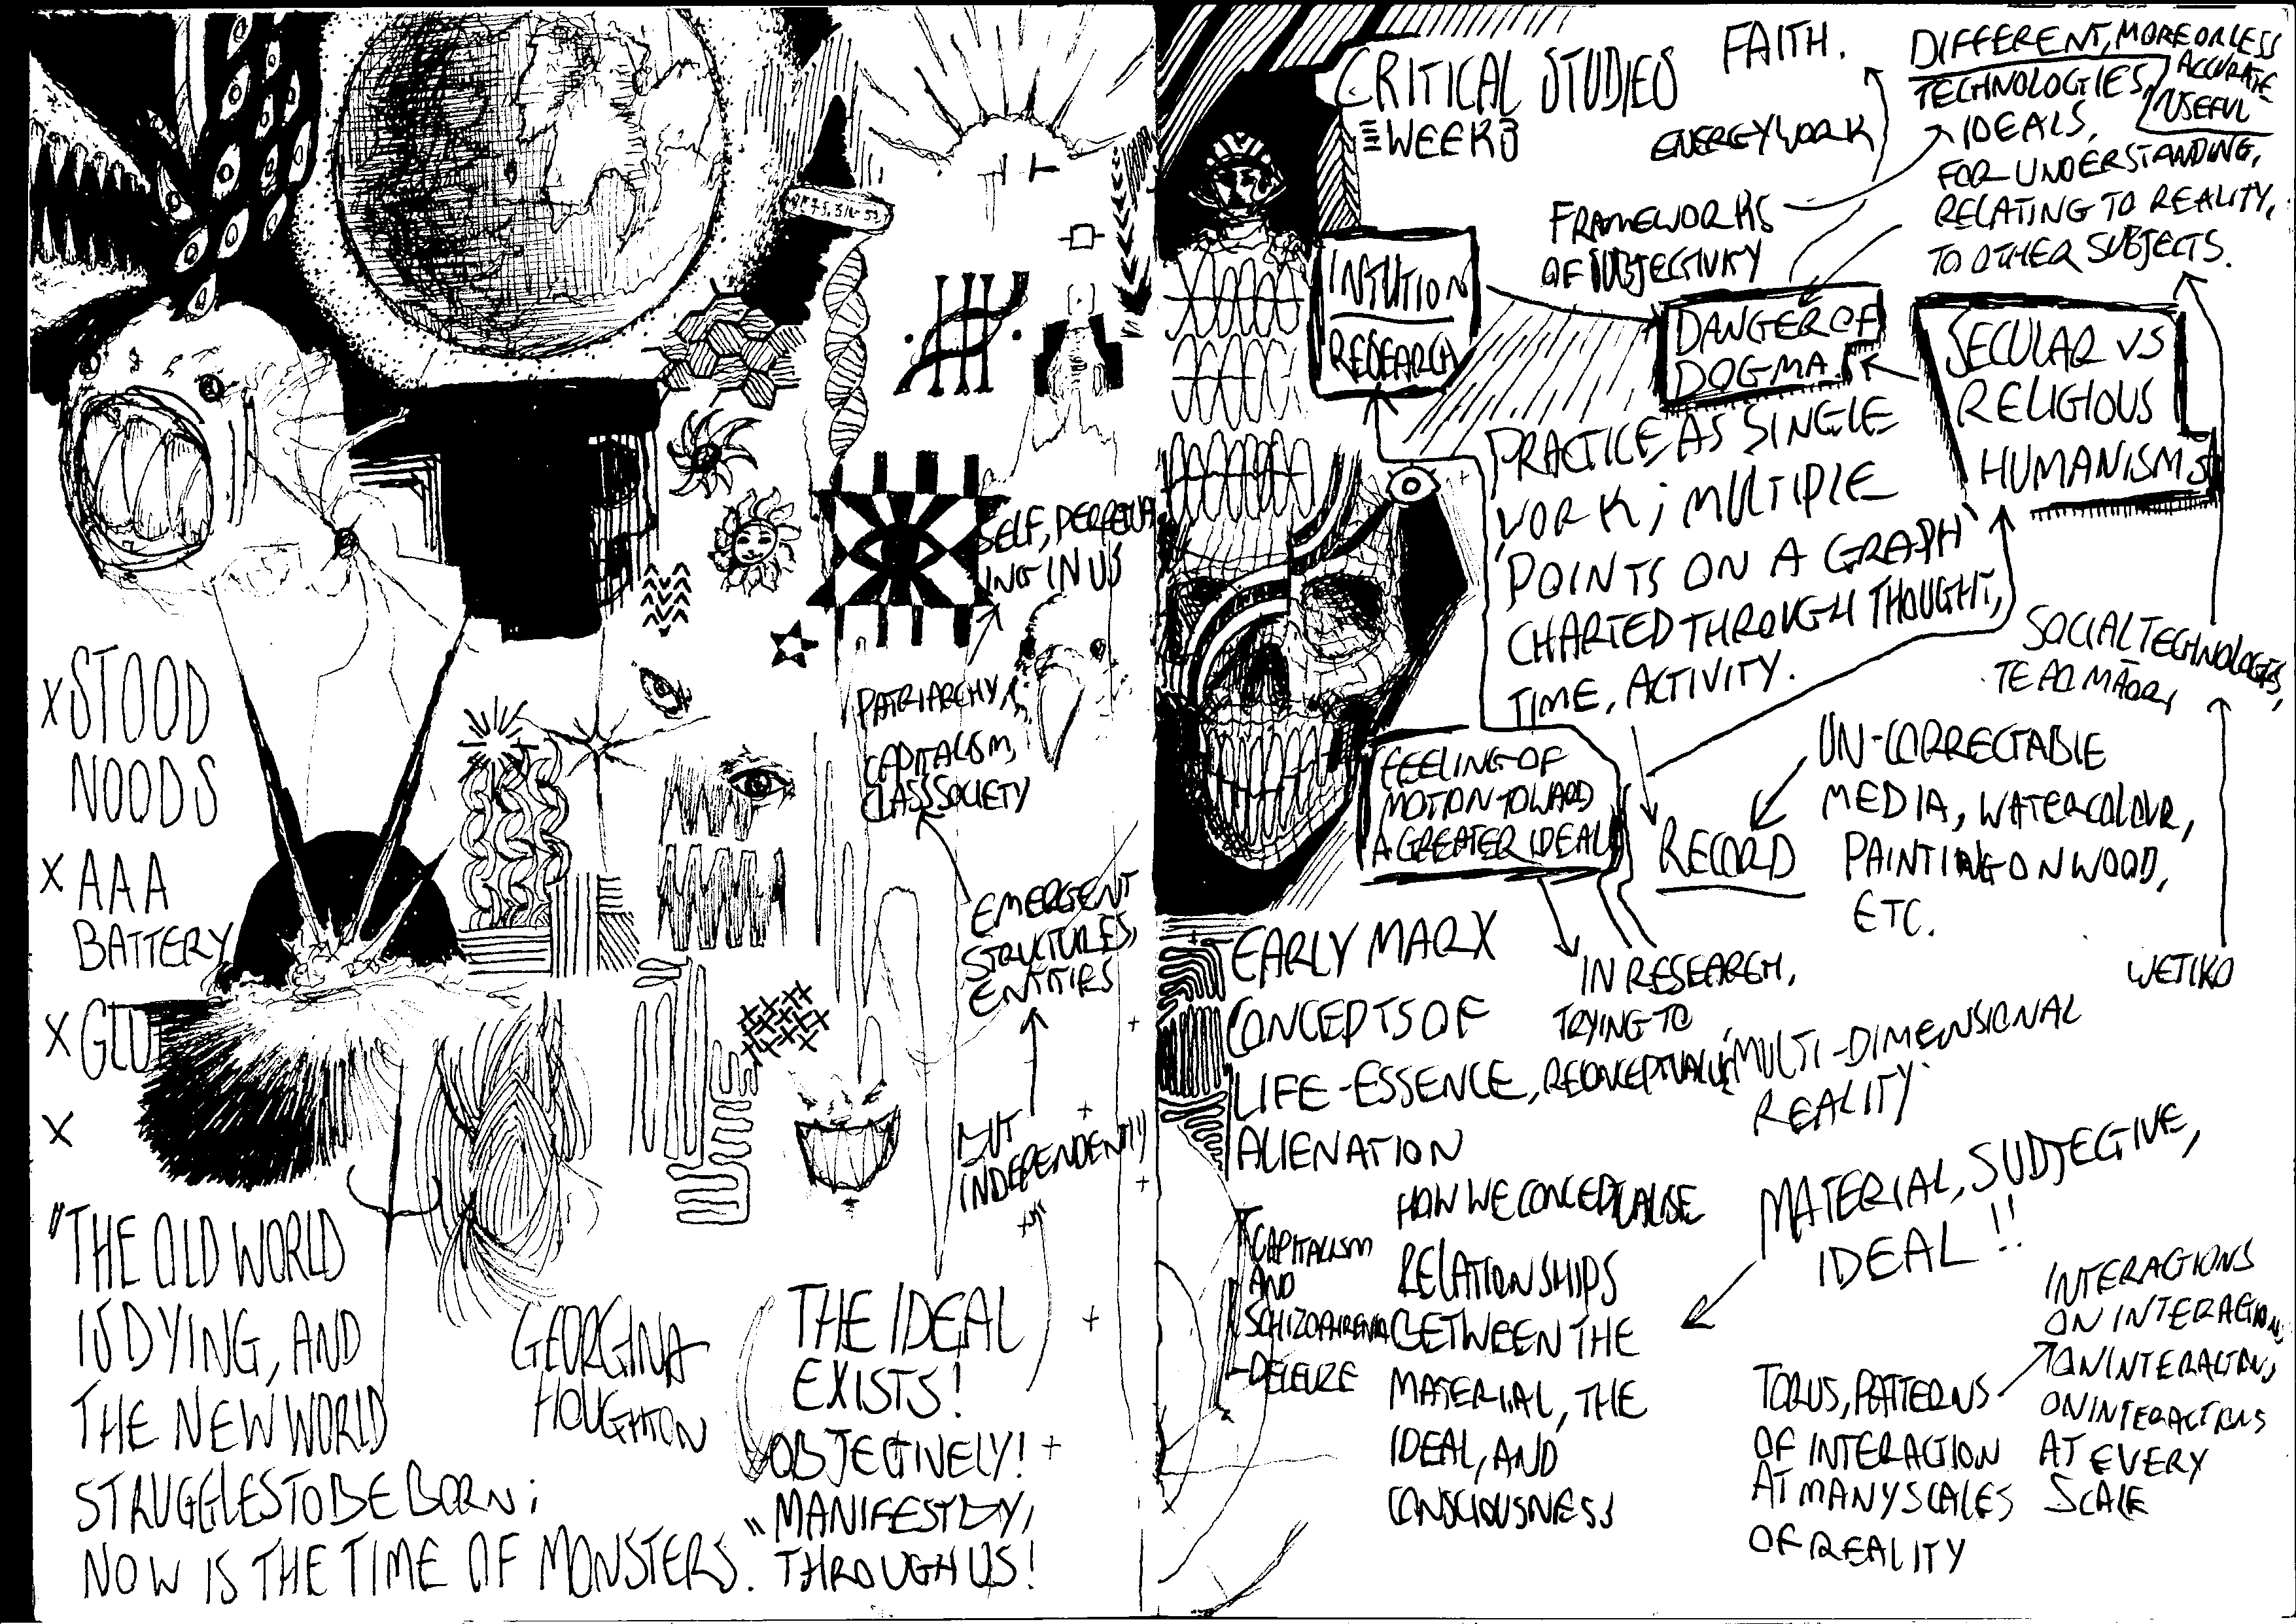 X STOOD
NOODS
X AAA
BATTERY
X GLU
X
"THE OLD WORLD
IS DYING, AND
THE NEW WORLD
STRUGGLES TO BE BORN;
NOW IS THE TIME OF MONSTERS."
GEORGINA
HOUGHTON
SELF, PERPETUAT
ING IN US
PATRIARCHY,
CAPITALISM,
CLASS SOCIETY
EMERGENT
STRUCTURES,
ENTITIES
BUT
INDEPENDENTLY
THE IDEAL
EXISTS!
OBJECTIVELY!
MANIFESTLY,
THROUGH US!
CRITICAL STUDIES
WEEK 3
FAITH.
ENERGYWORK
FRAMEWORKS
OF SUBJECTIVITY
DIFFERENT, MORE OR LESS
ACCURATE
USEFUL
TECHNOLOGIES,
IDEALS,
FOR UNDERSTANDING,
RELATING TO REALITY,
TO OTHER SUBJECTS.
INTUTION
RESEARCH
DANGER OF
DOGMA.
SECULAR VS
RELIGIOUS
HUMANISMS
PRACTICE AS SINGLE
WORK; MULTIPLE
'POINTS ON A GRAPH'
CHARTED THROUGH THOUGHT,
TIME, ACTIVITY.
SOCIAL TECHNOLOGIES,
TE AO MĀORI
WETIKO
FEELING OF
MOTION TOWARD
A GREATER IDEAL
RECORD
UN-CORRECTABLE
MEDIA, WATERCOLOUR,
PAINTING ON WOOD,
ETC.
EARLY MARX
CONCEPTS OF
LIFE-ESSENCE,
ALIENATION
IN RESEARCH,
TRYING TO
RECONCEPTUALISE
MULTI-DIMENSIONAL
REALITY.
CAPITALISM
AND
SCHIZOPHRENIA
-DELEUZE
HOW WE CONCEPTUALISE
RELATIONSHIPS
BETWEEN THE
MATERIAL, THE
IDEAL, AND
CONSCIOUSNESS
MATERIAL, SUBJECTIVE,
IDEAL!!
TORUS, PATTERNS
OF INTERACTION
AT MANY SCALES
OF REALITY
INTERACTIONS
ON INTERACTIONS,
ON INTERACTIONS,
ON INTERACTIONS
AT EVERY
SCALE